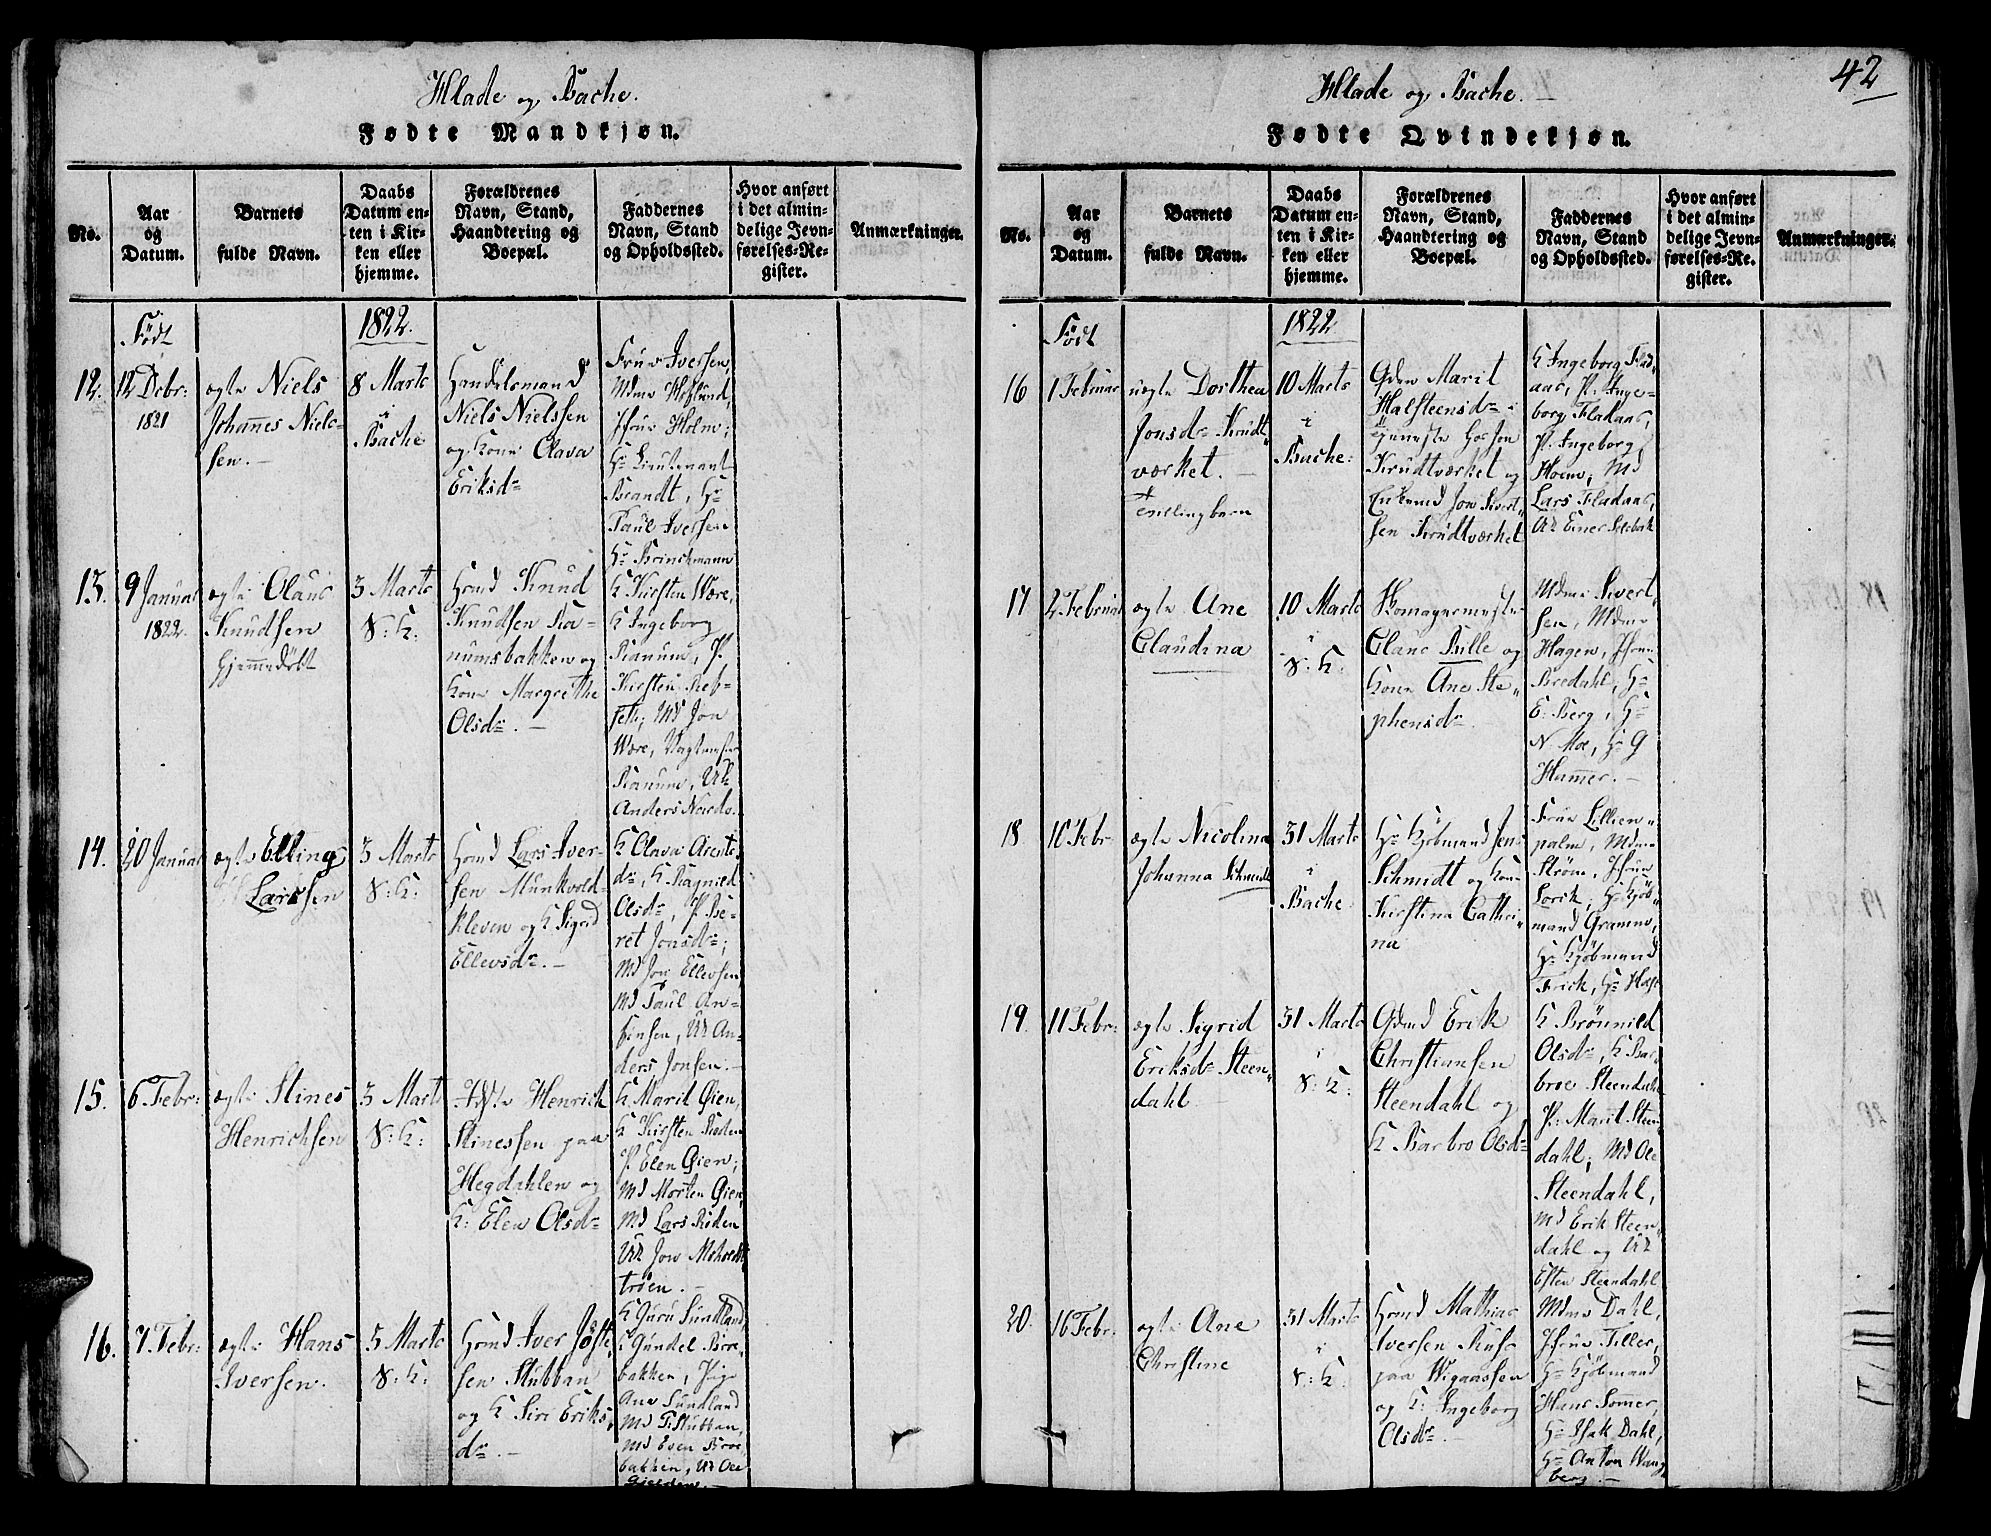 Hlade og Bache.
Fødte Mandkjøn.
No.
Aar
og
Datum.
Barnets
fulde Navn.
Daabs
Datum en-
ten i Kir-
ken eller
hjemme.
Forældrenes
Navn, Stand,
Haandtering og
Boepæl.
Faddernes
Navn, Stand
og Opholdssted.
Hvor anført
i det almin-
delige Jevn-
førelses-Re-
gister.
Anmærkninger.
Født
1822.
12.
12 Debr:
1821
ægte Niels
Johannes Niel-
sen.
8 Marts
i
Bache
Handelsmand
Niels Nielssen
og Kone Olava
Eriksdr
Frue Iversen,
Mdme Høglund,
Jfrue Holm;
Hr Lieutenant
Brandt, Hr
Paul Iversen
Hr Brinchmann
13.
9 Januar
1822
ægte Olaus
Knudsen
hjemmedøbt
3 Marts
V: K:
Hmd Knud
Knudsen Ra-
numsbakken og
Kone Margrethe
Olsdr.
K Kirsten Være,
K Ingeborg
Ranum, P.
Kirsten Reb-
Md Jon
Være, Vagtmester
Ranum, Uk
Anders
14.
20 Januar
ægte Elling
Larssen
3 Marts
V: K:
Hmd Lars Iver-
sen Munkvold-
kleven og K Sigrid
Ellevsdr.
K Olava Arents-
dr, K Ragnild
Olsdr, P. Be-
ret Jonsdr;
Md Jon Ellevsen
Md Paul An-
Uk An-
ders Jonsen.
15.
6 Febr:
ægte Stines
Henrichsen
3 Marts
V: K:
Henrich
Stinessen paa
Hegdahlen og
K: Elen Olsdr
K Marit Øien,
K Kirsten Røden
P. Elen Øien;
Md Morten Øien,
Md Lars Røden
Uk Jon Moholdt
trøen.
16.
7 Febr:
ægte Hans
Iversen.
5 Marts
V: K:
Hmd Iver Joste
sen Stubban
og K Siri Eriks
dr.
K Guru Sundland,
K Gundel Broe-
bakken, Pige
Ane Sundland
Md P. Stubban,
Md Even Broe
bakken, Uk Ole
42
Hlade og Bache.
Fødte Qvindekjøn.
No.
Aar
og
Datum.
Barnets
fulde Navn.
Daabs
Datum en-
ten i Kir-
ken eller
hjemme.
Forældrenes
Navn, Stand,
Haandtering og
Boepæl.
Faddernes
Navn, Stand
og Opholdssted.
Hvor anført
i det almin-
delige Jevn-
førelses-Re-
gister.
Anmærkninger.
Født
1822
16
1 Februar
uægte Dorthea
Jonsdr Krudt
værket.
Tvillingbarn
10 Marts
i
Bache:
Marit
Halsteensdr i
tjeneste hos Jon
Krudtværket og
Enkemd Jon Sivert
sen Krudtværket
K Ingeborg Flad
aas, P. Inge-
borg Fladaas,
P. Ingeborg
Hoem, Md
Lars Fladaas,
Uk Einer
17
2 Februar
ægte Ane
Claudina
10 Marts
i
V: K:
Claus Bille og
Kone Ane Ste
phensdr.
Mdme Sivert
sen, Mdme
Hagen, Jfrue
Bredahl, Hr
E. Berg, Hr
N. Moe, Hr G
Hammer.
18
10 Febr
ægte Nicolina
Johanna Schmidt
31 Marts
i
Bache
Hr Kjøbmand Jens
Schmidt og Kone
Kirstina Cathri
na
Frue Lillien
palm, Mdme
Strøm, Jfrue
Lorck, Hr Kjøb
mand Gramm,
Hr Kjøbmand
Frick, Hr
19.
11 Febr:
ægte Sigrid
Eriksdr Steen
dahl
31 Marts
i
V: K:
Gdmd Erik
Christiansen
Steendahl og
K Barbro Olsdr
K Brønnild
Olsdr, K Bar
broe Steendahl
P. Marit Steen
dahl, Md Ole
Steendahl,
Md Erik Steen
dahl og Uk
Esten Steendahl
20.
16 Febr:
ægte Ane
Christine
31 Marts
i
V: K:
Hmd Mathias
Iversen
paa
og K: Ingeborg
Olsdr.
Mdme Dahl,
Jfrue Tiller,
Hr Kjøbmand
Hans Somer,
Hr Isak Dahl,
Hr Anton Wang
berg.